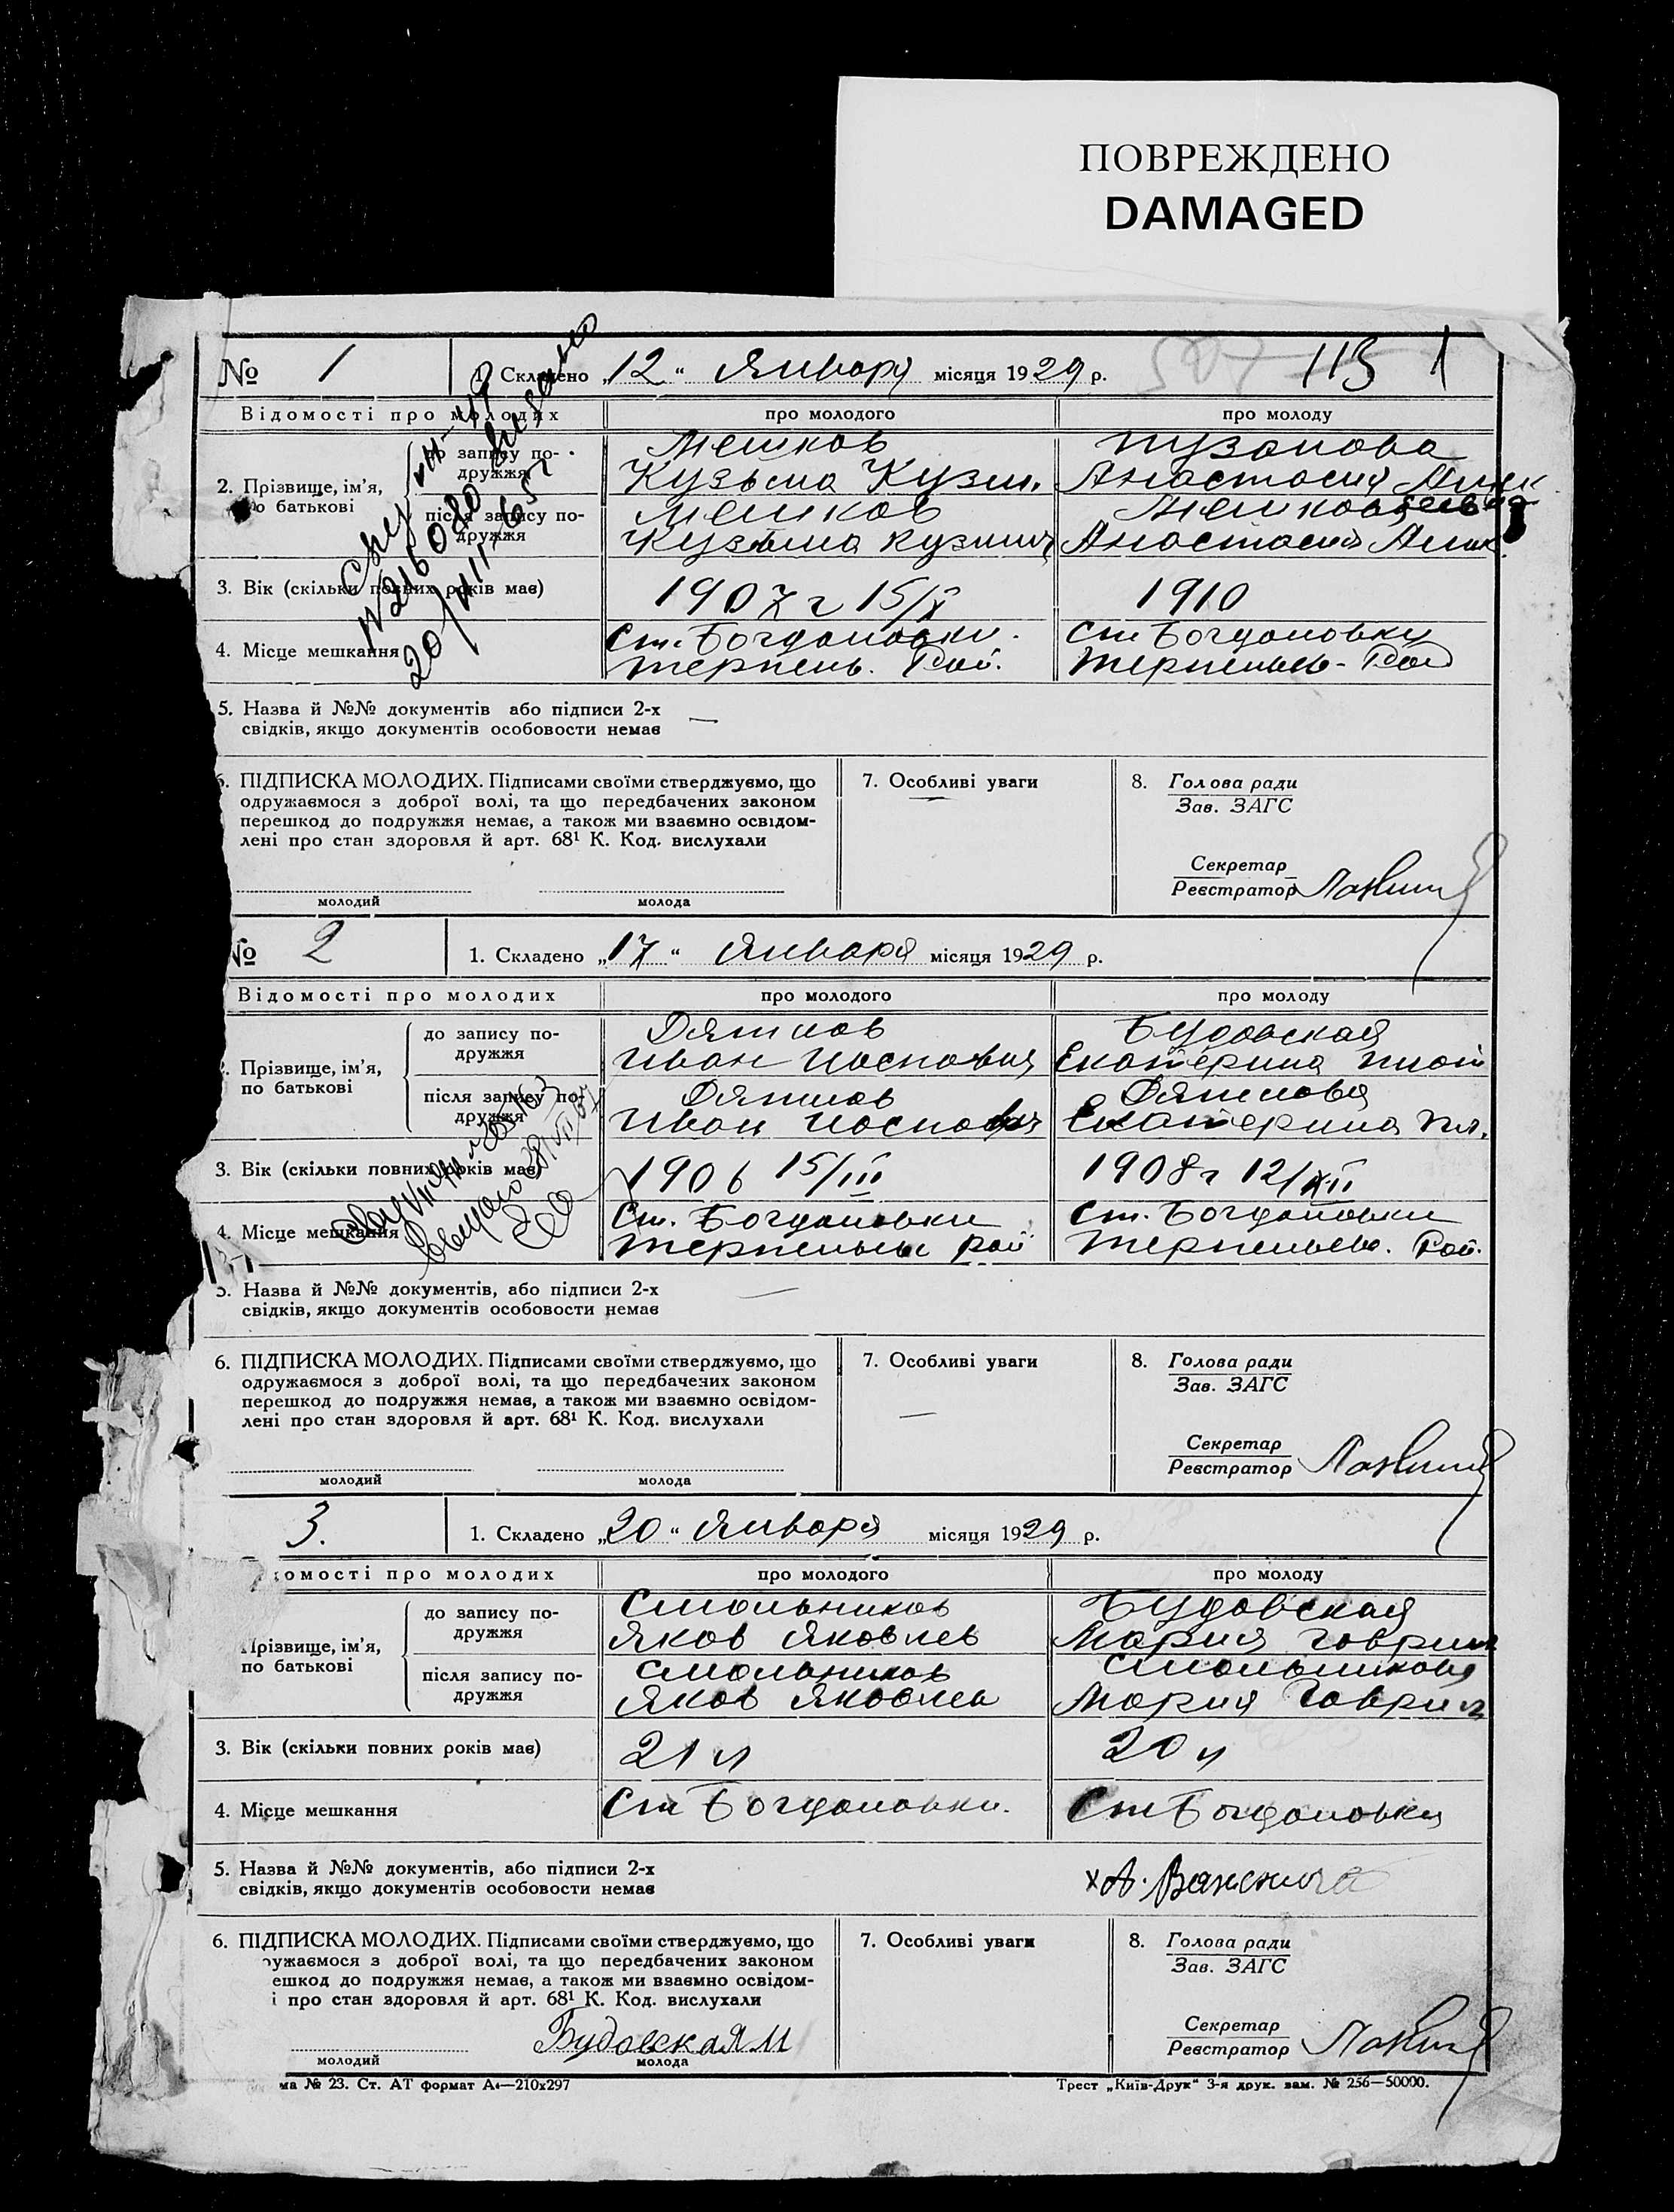 ПОВРЕЖДЕНО
DAMAGED
№ 1
1. Складено „12“ Января місяця 1929 р.
113 1
Відомості про молодих
про молодого
про молоду
2. Прізвище, ім’я,
по батькові
до запису по-
дружжя
Мешков
Кузьма Кузм.
Пузанова
Анастасия
після запису по-
дружжя
Мешков
Кузьма Кузмич
Мешкова
Анастасия
3. Вік (скільки повних років має)
1907 г 15/X
1910
4. Місце мешкання
Ст. Богдановки.
Терпень. Рай.
Ст. Богдановки
Терпеньев. Рай
5. Назва й №№ документів або підписи 2-х
свідків, якщо документів особовости немає
—
6. ПІДПИСКА МОЛОДИХ. Підписами своїми стверджуємо, що
одружаємося з доброї волі, та що передбачених законом
перешкод до подружжя немає, а також ми взаємно освідом-
лені про стан здоровля й арт. 68¹ К. Код. вислухали
молодий
молода
7. Особливі уваги
—
8. Голова ради
Зав. ЗАГС
Секретар
Реєстратор
№ 2
1. Складено „17“ Января місяця 1929 р.
Відомості про молодих
про молодого
про молоду
Прізвище, ім’я,
по батькові
до запису по-
дружжя
Дятлов
Иван
Будовская
Екатерина
після запису по-
дружжя
Дятлов
Иван
Дятлова
Екатерина
3. Вік (скільки повних років має)
1906 15/III
1908 г 12/XII
4. Місце мешкання
Ст. Богдановки
Рай
Ст. Богдановки
Терпеньев. Рай.
5. Назва й №№ документів, або підписи 2-х
свідків, якщо документів особовости немає
—
6. ПІДПИСКА МОЛОДИХ. Підписами своїми стверджуємо, що
одружаємося з доброї волі, та що передбачених законом
перешкод до подружжя немає, а також ми взаємно освідом-
лені про стан здоровля й арт. 68¹ К. Код. вислухали
молодий
молода
7. Особливі уваги
—
8. Голова ради
Зав. ЗАГС
Секретар
Реєстратор
3.
1. Складено „20“ Января місяця 1929 р.
омості про молодих
про молодого
про молоду
Прізвище, ім’я,
по батькові
до запису по-
дружжя
Смольников
Яков Яковлев
Будовская
Мария Гаврил
після запису по-
дружжя
Смольников
Яков Яковлев
Смольникова
Мария Гаврил
3. Вік (скільки повних років має)
21 л
20 л
4. Місце мешкання
Ст Богдановки.
Ст Богдановки
5. Назва й №№ документів, або підписи 2-х
свідків, якщо документів особовости немає
6. ПІДПИСКА МОЛОДИХ. Підписами своїми стверджуємо, що
ружаємося з доброї волі, та що передбачених законом
ешкод до подружжя немає, а також ми взаємно освідом-
і про стан здоровля й арт. 68¹ К. Код. вислухали
Будовская М
молодий
молода
7. Особливі уваги
8. Голова ради
Зав. ЗАГС
Секретар
Реєстратор
ма № 23. Ст. АТ формат А4—210х297
Трест „Київ-Друк“ 3-я друк. зам. № 256—50000.